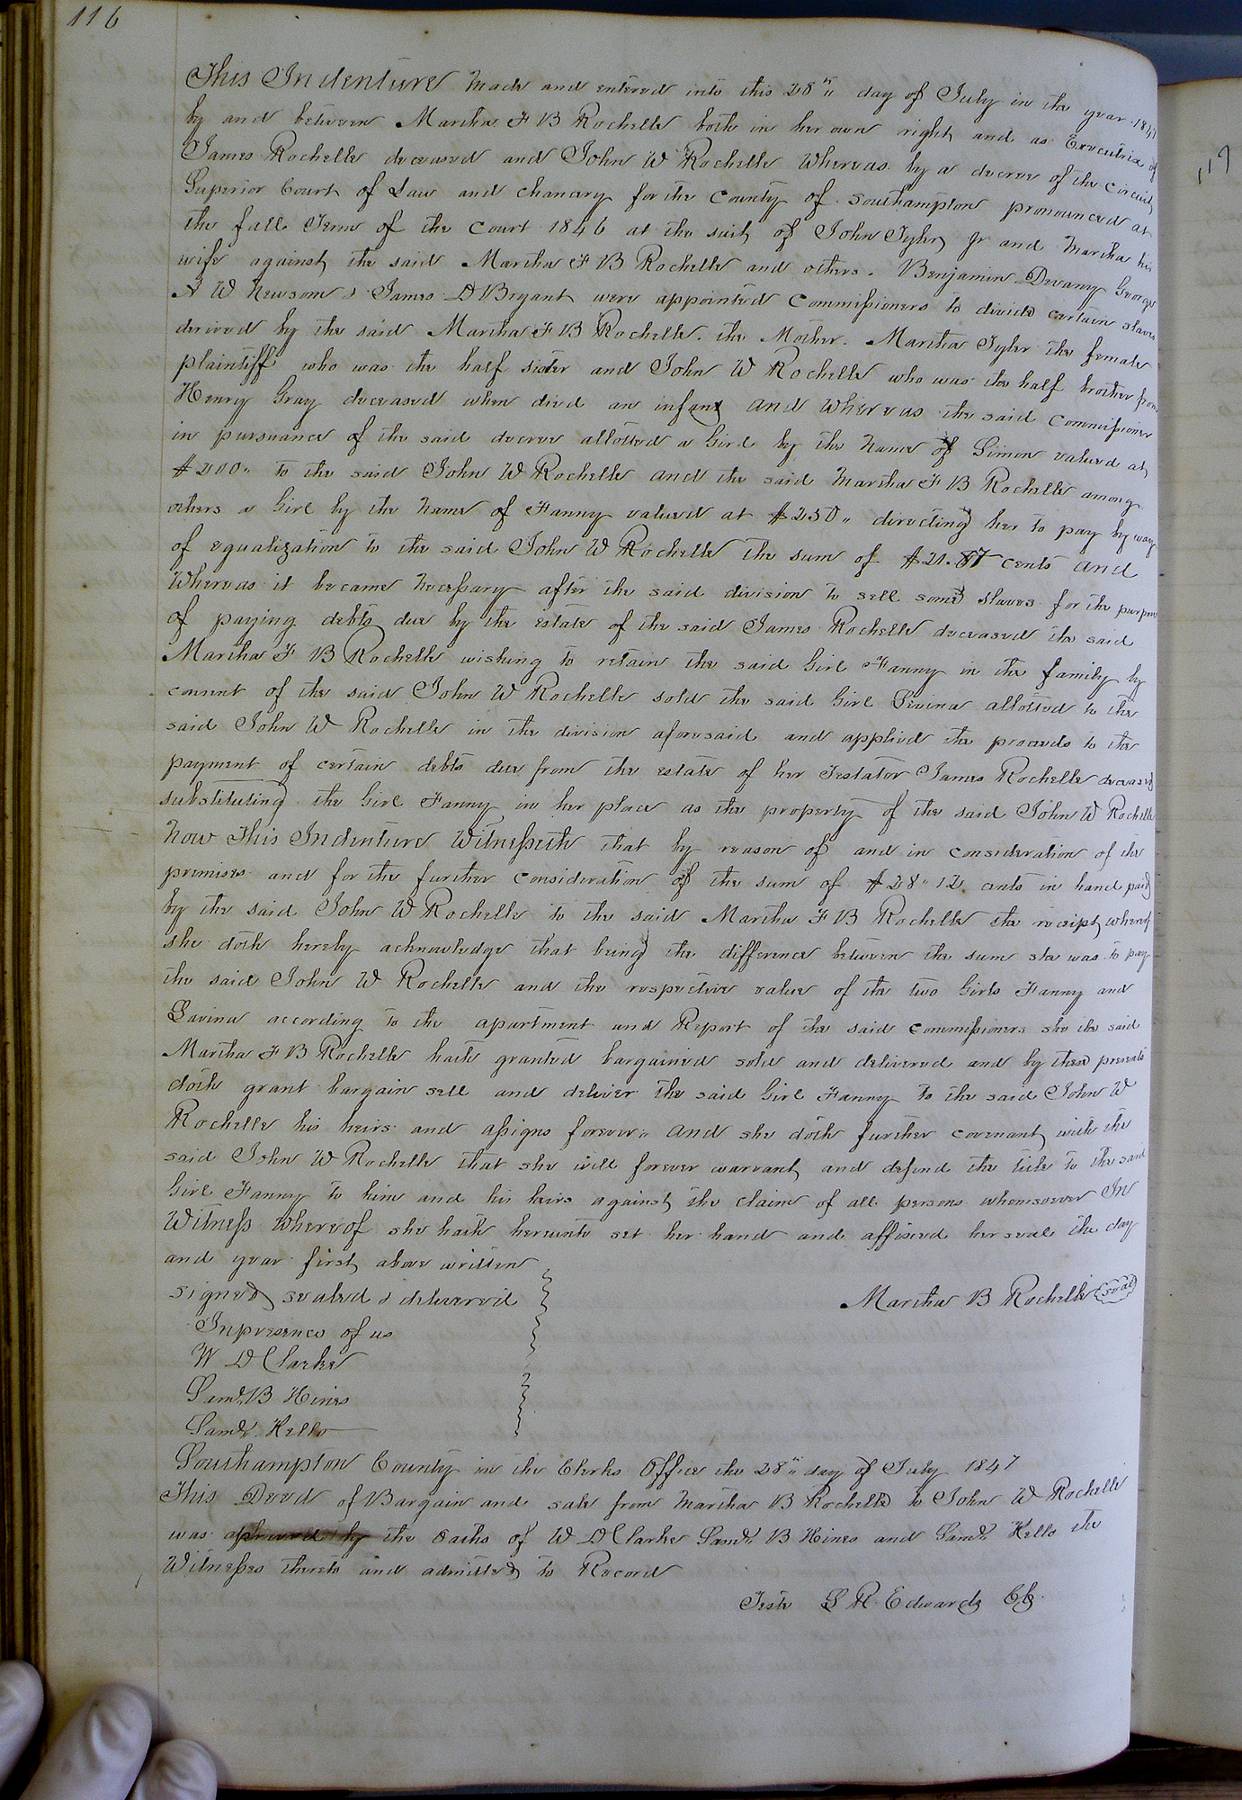 116
This Indenture made and entered into this 28th day of July in the year 1847
by and between Martha F B Rochelle both in her own right and as Executrix of
James Rochelle deceased and John W Rochelle Whereas by a decree of the Circuit
Superior Court of Law and chancery for the County of Southampton pronounced at
the fall Term of the Court 1846 at the suit of John Tyler Jr and Martha his
wife against the said Martha F B Rochelle and others. Benjamin Devany George
A W Newsom & James D Bryant were appointed Commissioners to divide certain slaves
derived by the said Martha F B Rochelle. the Mother. Martha Tyler the female
plaintiff who was the half sister and John W Rochelle who was the half brother from
Henry Gray deceased when died an infant and whereas the said Commissioners
in pursuance of the said decree allotted a Girl by the name of valued at
$200" to the said John W Rochelle and the said Martha F B Rochelle among
others a Girl by the name of Fanny valued at $250" directing her to pay by way
of equalization to the said John W Rochelle the sum of $21.87 cents and
Whereas it became necessary after the said division to sell some slaves for the purpose
of paying debts due by the estate of the said James Rochelle deceased the said
Martha F B Rochelle wishing to retain the said Girl Fanny in the family by
consent of the said John W Rochelle sold the said Girl allotted to the
said John W Rochelle in the division aforesaid and applied the proceeds to the
payment of certain debts due from the estate of her Testator James Rochelle deceased
substituting the Girl Fanny in her place as the property of the said John W Rochelle
Now This Indenture Witnesseth that by reason of and in consideration of the
premises and for the further consideration of the sum of $28" 12 cents in hand paid
by the said John W Rochelle to the said Martha F B Rochelle the receipt whereof
she doth hereby acknowledge that being the difference between the sum she was to pay
the said John W Rochelle and the respective value of the two Girls Fanny and
Lavina according to the apartment and Report of the said Commissioners she the said
Martha F B Rochelle hath granted bargained sold and delivered and by these presents
doth grant bargain sell and deliver the said Girl Fanny to the said John W
Rochelle his heirs and assigns forever" and she doth further covenant with the
said John W Rochelle that she will forever warrant and defend the title to the said
Girl Fanny to him and his heirs against the claim of all persons whomsoever In
Witness whereof she hath hereunto set her hand and affixed her seal the day
and year first above written
signed sealed & delivered
Martha B Rochelle (seal)
Inpresence of us
W D Clarke
Saml B Hines
Saml Kello
Southampton County in the Clerks Office the 28th day of July 1847
This Deed of Bargain and sale from Martha B Rochelle to John W Rochelle
was by the oaths of W D Clarke Saml B Hines and Saml Kello the
Witnesses thereto and admitted to Record
Teste L R Edwards Clk
117